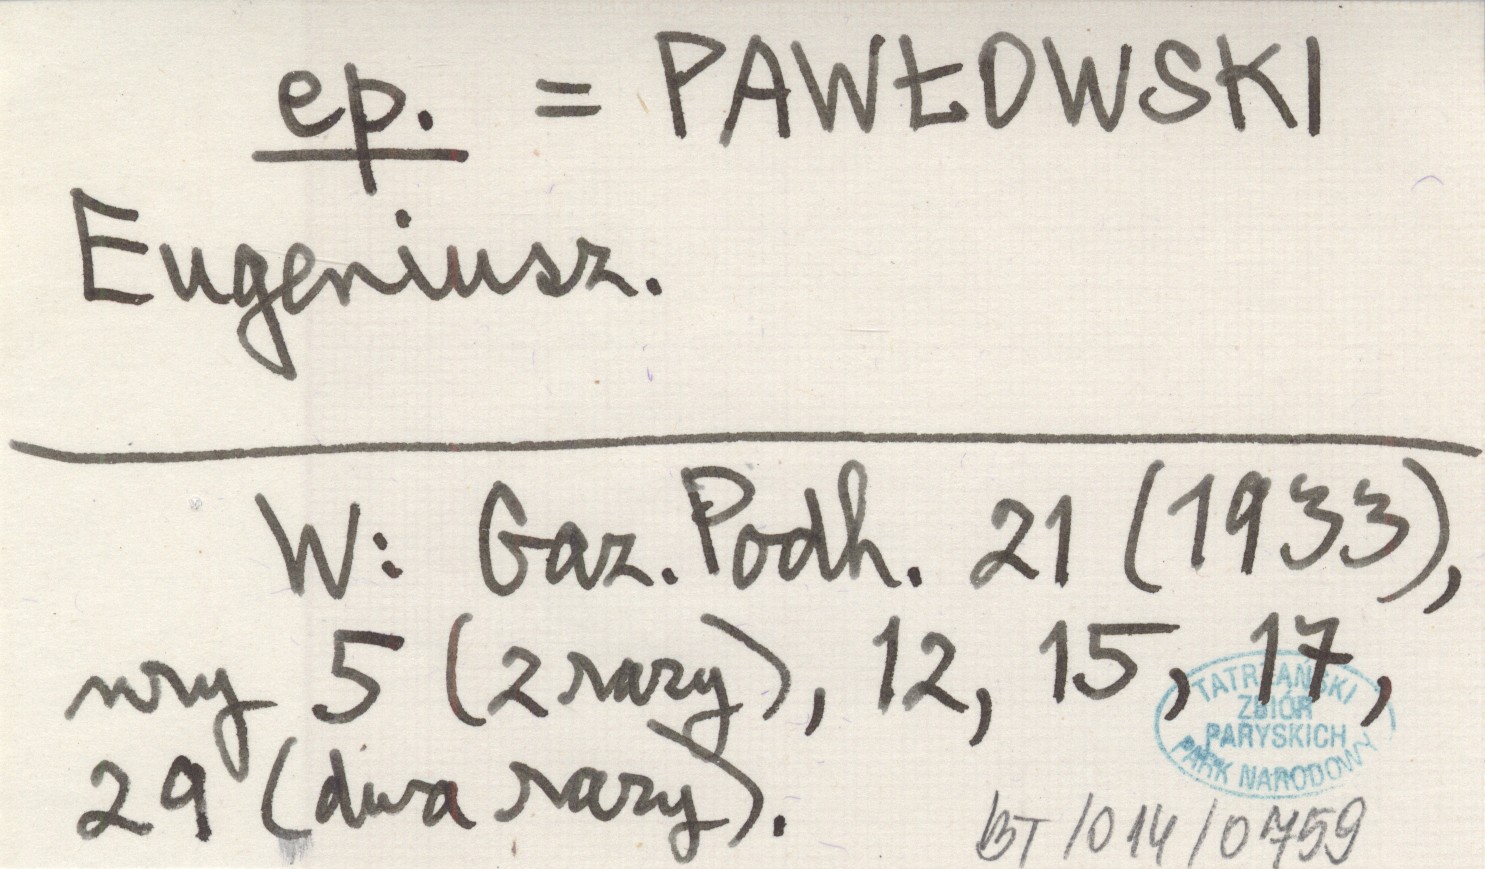 ep. = PAWŁOWSKI
Eugeniusz.
W: Gaz. Podh. 21 (1933),
nry 5 (2 razy), 12, 15, 17,
29 (dwa razy).
TATRZAŃSKI
ZBIÓR
PARYSKICH
PARK NARODOWY
BT/014/0759